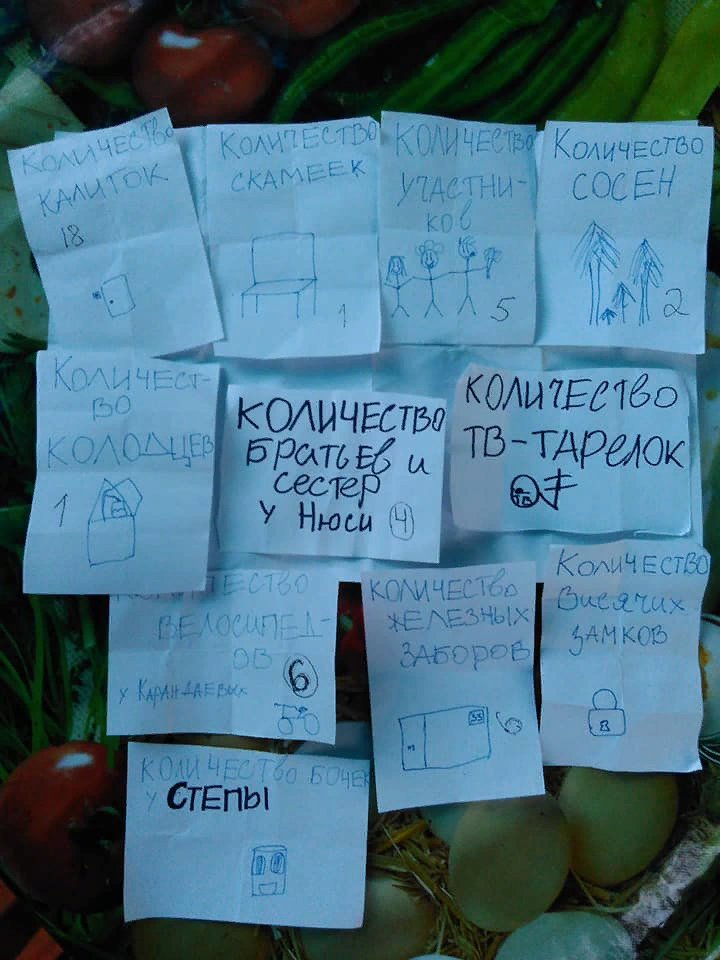 КОЛИЧЕСТВО
КАЛИТОК
18
КОЛИЧЕСТВО
СКАМЕЕК
1
КОЛИЧЕСТВО
УЧАСТНИ-
КОВ
5
КОЛИЧЕСТВО
СОСЕН
2
КОЛИЧЕСТ-
ВО
КОЛОДЦЕВ
1
КОЛИЧЕСТВО
БРАТЬЕВ И
СЕСТЕР
У НЮСИ 4
КОЛИЧЕСТВО
ТВ-ТАРЕЛОК
КОЛИЧЕСТВО
ВЕЛОСИПЕД-
ОВ 6
У КАРАНДАЕВЫХ
КОЛИЧЕСТВО
ЖЕЛЕЗНЫХ
ЗАБОРОВ
КОЛИЧЕСТВО
ВИСЯЧИХ
ЗАМКОВ
КОЛИЧЕСТВО БОЧЕК
У СТЕПЫ